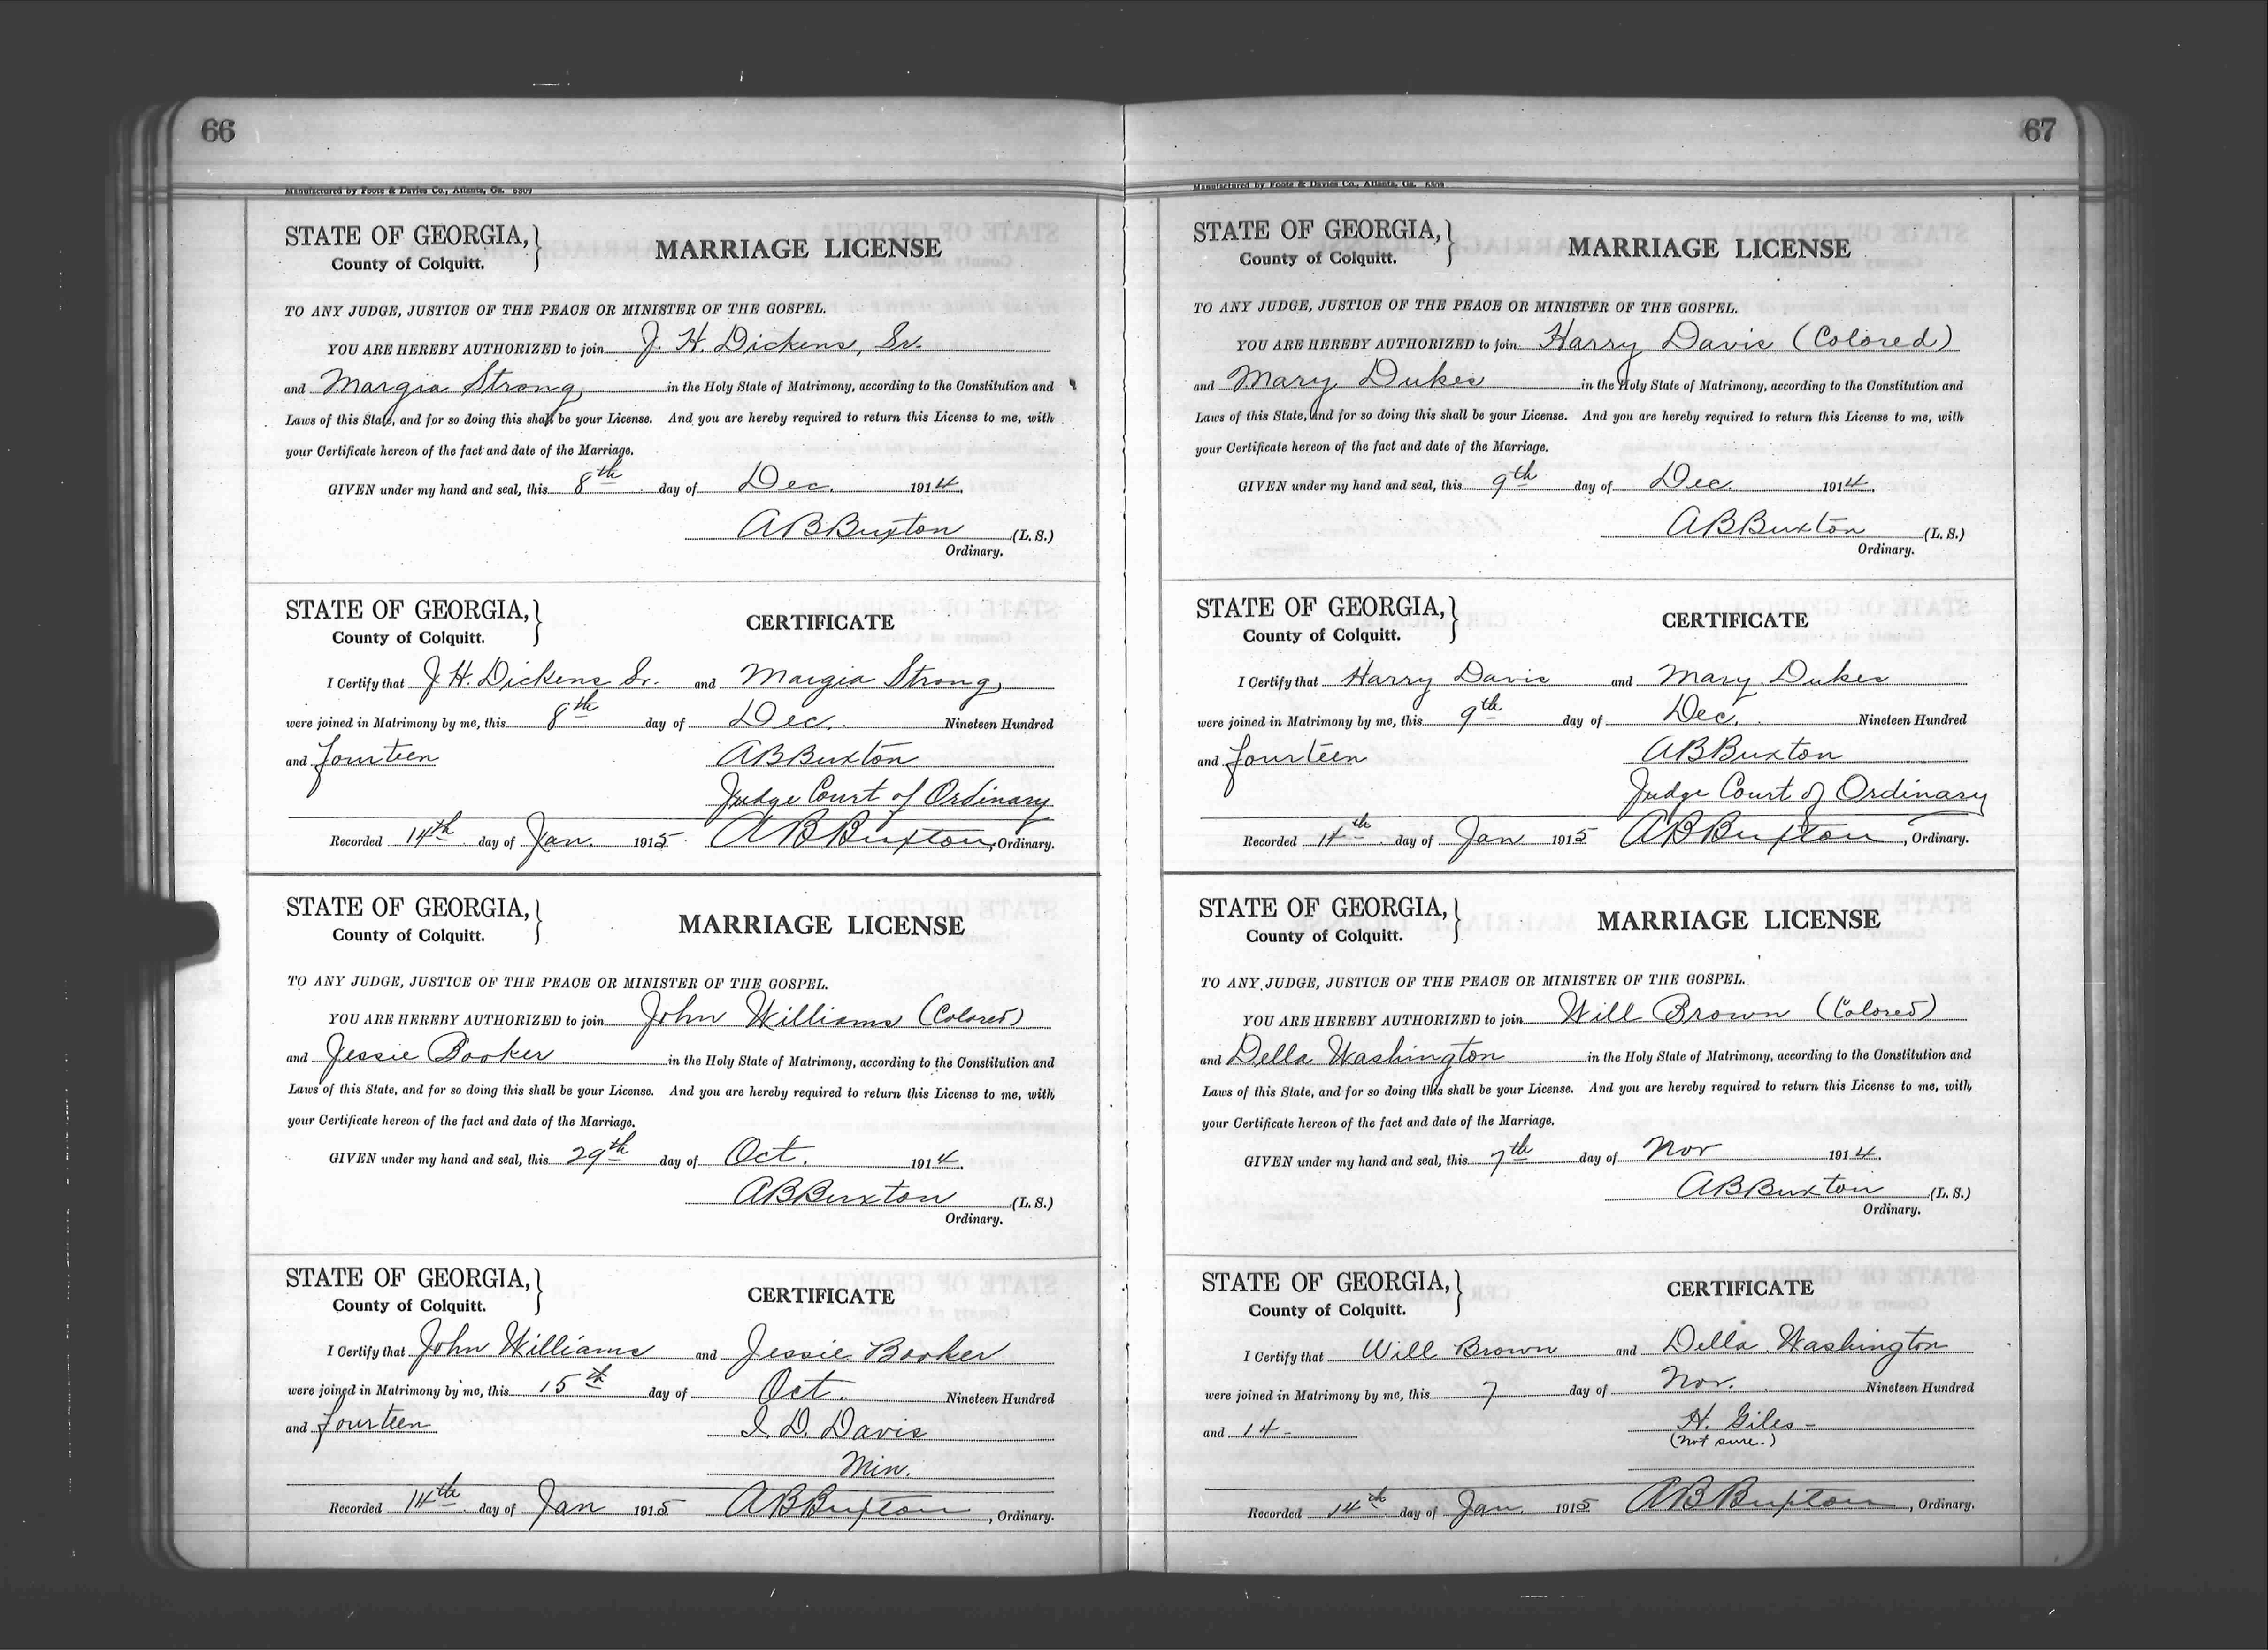 66
Manufactured by Foote & Davies Co., Atlanta, Ga. 6309
STATE OF GEORGIA,
County of Colquitt.
MARRIAGE LICENSE
TO ANY JUDGE, JUSTICE OF THE PEACE OR MINISTER OF THE GOSPEL.
YOU ARE HEREBY AUTHORIZED to join J. H. Dickens, Sr.
and Margia Strong in the Holy State of Matrimony, according to the Constitution and
Laws of this State, and for so doing this shall be your License. And you are hereby required to return this License to me, with
your Certificate hereon of the fact and date of the Marriage.
GIVEN under my hand and seal, this 8th day of Dec. 1914.
A B Buxton (L. S.)
Ordinary.
STATE OF GEORGIA,
County of Colquitt.
CERTIFICATE
I Certify that J. H. Dickens Sr. and Margia Strong
were joined in Matrimony by me, this 8th day of Dec. Nineteen Hundred
and fourteen A B Buxton
Judge Court of Ordinary
Recorded 14th day of Jan. 1915 A B Buxton, Ordinary.
STATE OF GEORGIA,
County of Colquitt.
MARRIAGE LICENSE
TO ANY JUDGE, JUSTICE OF THE PEACE OR MINISTER OF THE GOSPEL.
YOU ARE HEREBY AUTHORIZED to join John Williams (Colored)
and Jessie Booker in the Holy State of Matrimony, according to the Constitution and
Laws of this State, and for so doing this shall be your License. And you are hereby required to return this License to me, with
your Certificate hereon of the fact and date of the Marriage.
GIVEN under my hand and seal, this 29th day of Oct. 1914.
A B Buxton (L. S.)
Ordinary.
STATE OF GEORGIA,
County of Colquitt.
CERTIFICATE
I Certify that John Williams and Jessie Booker
were joined in Matrimony by me, this 15th day of Oct. Nineteen Hundred
and fourteen I. D. Davis
Min.
Recorded 14th day of Jan 1915 A B Buxton, Ordinary.
67
Manufactured by Foote & Davies Co., Atlanta, Ga. 6309
STATE OF GEORGIA,
County of Colquitt.
MARRIAGE LICENSE
TO ANY JUDGE, JUSTICE OF THE PEACE OR MINISTER OF THE GOSPEL.
YOU ARE HEREBY AUTHORIZED to join Harry Davis (Colored)
and Mary Dukes in the Holy State of Matrimony, according to the Constitution and
Laws of this State, and for so doing this shall be your License. And you are hereby required to return this License to me, with
your Certificate hereon of the fact and date of the Marriage.
GIVEN under my hand and seal, this 9th day of Dec. 1914.
A B Buxton (L. S.)
Ordinary.
STATE OF GEORGIA,
County of Colquitt.
CERTIFICATE
I Certify that Harry Davis and Mary Dukes
were joined in Matrimony by me, this 9th day of Dec. Nineteen Hundred
and fourteen A B Buxton
Judge Court of Ordinary
Recorded 14th day of Jan 1915 A B Buxton, Ordinary.
STATE OF GEORGIA,
County of Colquitt.
MARRIAGE LICENSE
TO ANY JUDGE, JUSTICE OF THE PEACE OR MINISTER OF THE GOSPEL.
YOU ARE HEREBY AUTHORIZED to join Will Brown (Colored)
and Della Washington in the Holy State of Matrimony, according to the Constitution and
Laws of this State, and for so doing this shall be your License. And you are hereby required to return this License to me, with
your Certificate hereon of the fact and date of the Marriage.
GIVEN under my hand and seal, this 7th day of Nov 1914.
A B Buxton (L. S.)
Ordinary.
STATE OF GEORGIA,
County of Colquitt.
CERTIFICATE
I Certify that Will Brown and Della Washington
were joined in Matrimony by me, this 7 day of Nov. Nineteen Hundred
and 14- H. Giles-
(not sure.)
Recorded 14th day of Jan. 1915 A B Buxton, Ordinary.